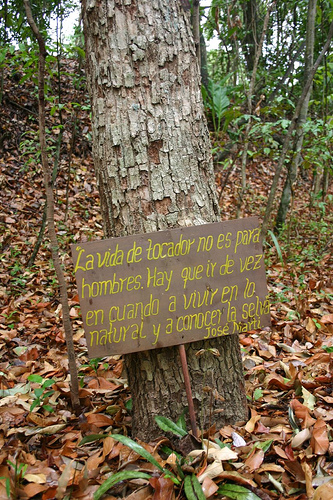 La vida de tocador no es para
hombres. Hay que ir de vez
en cuando a vivir en lo
natural y a conocer la selva
José Martí